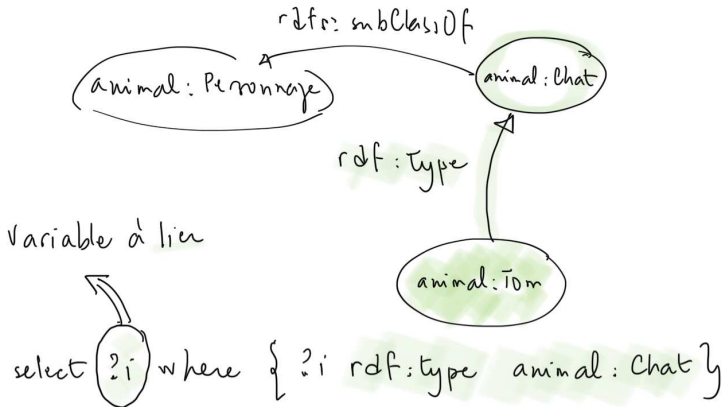 rdfs: subClassOf
animal: Personnage
animal: Chat
rdf: Type
Variable à lier
animal: Tom
select ?i where { ?i rdf:type animal: Chat }